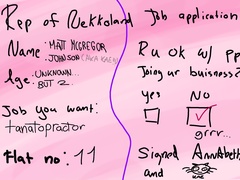 Rep of Nekkoland
Name: MATT MCGREGOR
JOHNSON (AKA KAEN)
Age: UNKNOWN...
BUT 2.
Job you want:
tanatopractor
Flat no: 11
Job application
R u ok w/ pp
Joing ur buisness?
yes NO
grrr...
Signed AnnAbeth
and